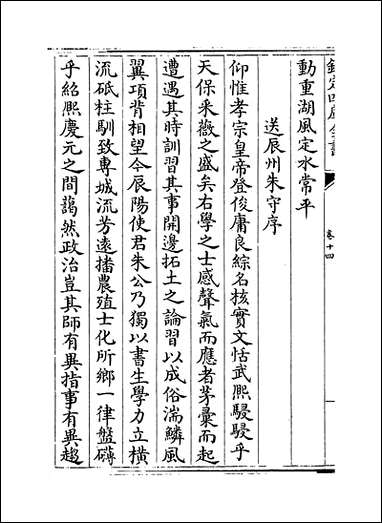 欽定四庫全書
卷十四
動重湖風定水常平
送辰州朱守序
仰惟孝宗皇帝登俊庸良綜名核實文恬武熙駸駸乎
天保采薇之盛矣右學之士感聲氣而應者茅彙而起
遭遇其時訓習其事開邊拓土之論習以成俗湍鱗風
翼項背相望今辰陽使君朱公乃獨以書生學力立橫
流砥柱馴致專城流芳遠播農殖士化所鄉一律盤礴
乎紹熙慶元之間藹然政治豈其師有異指事有異趨